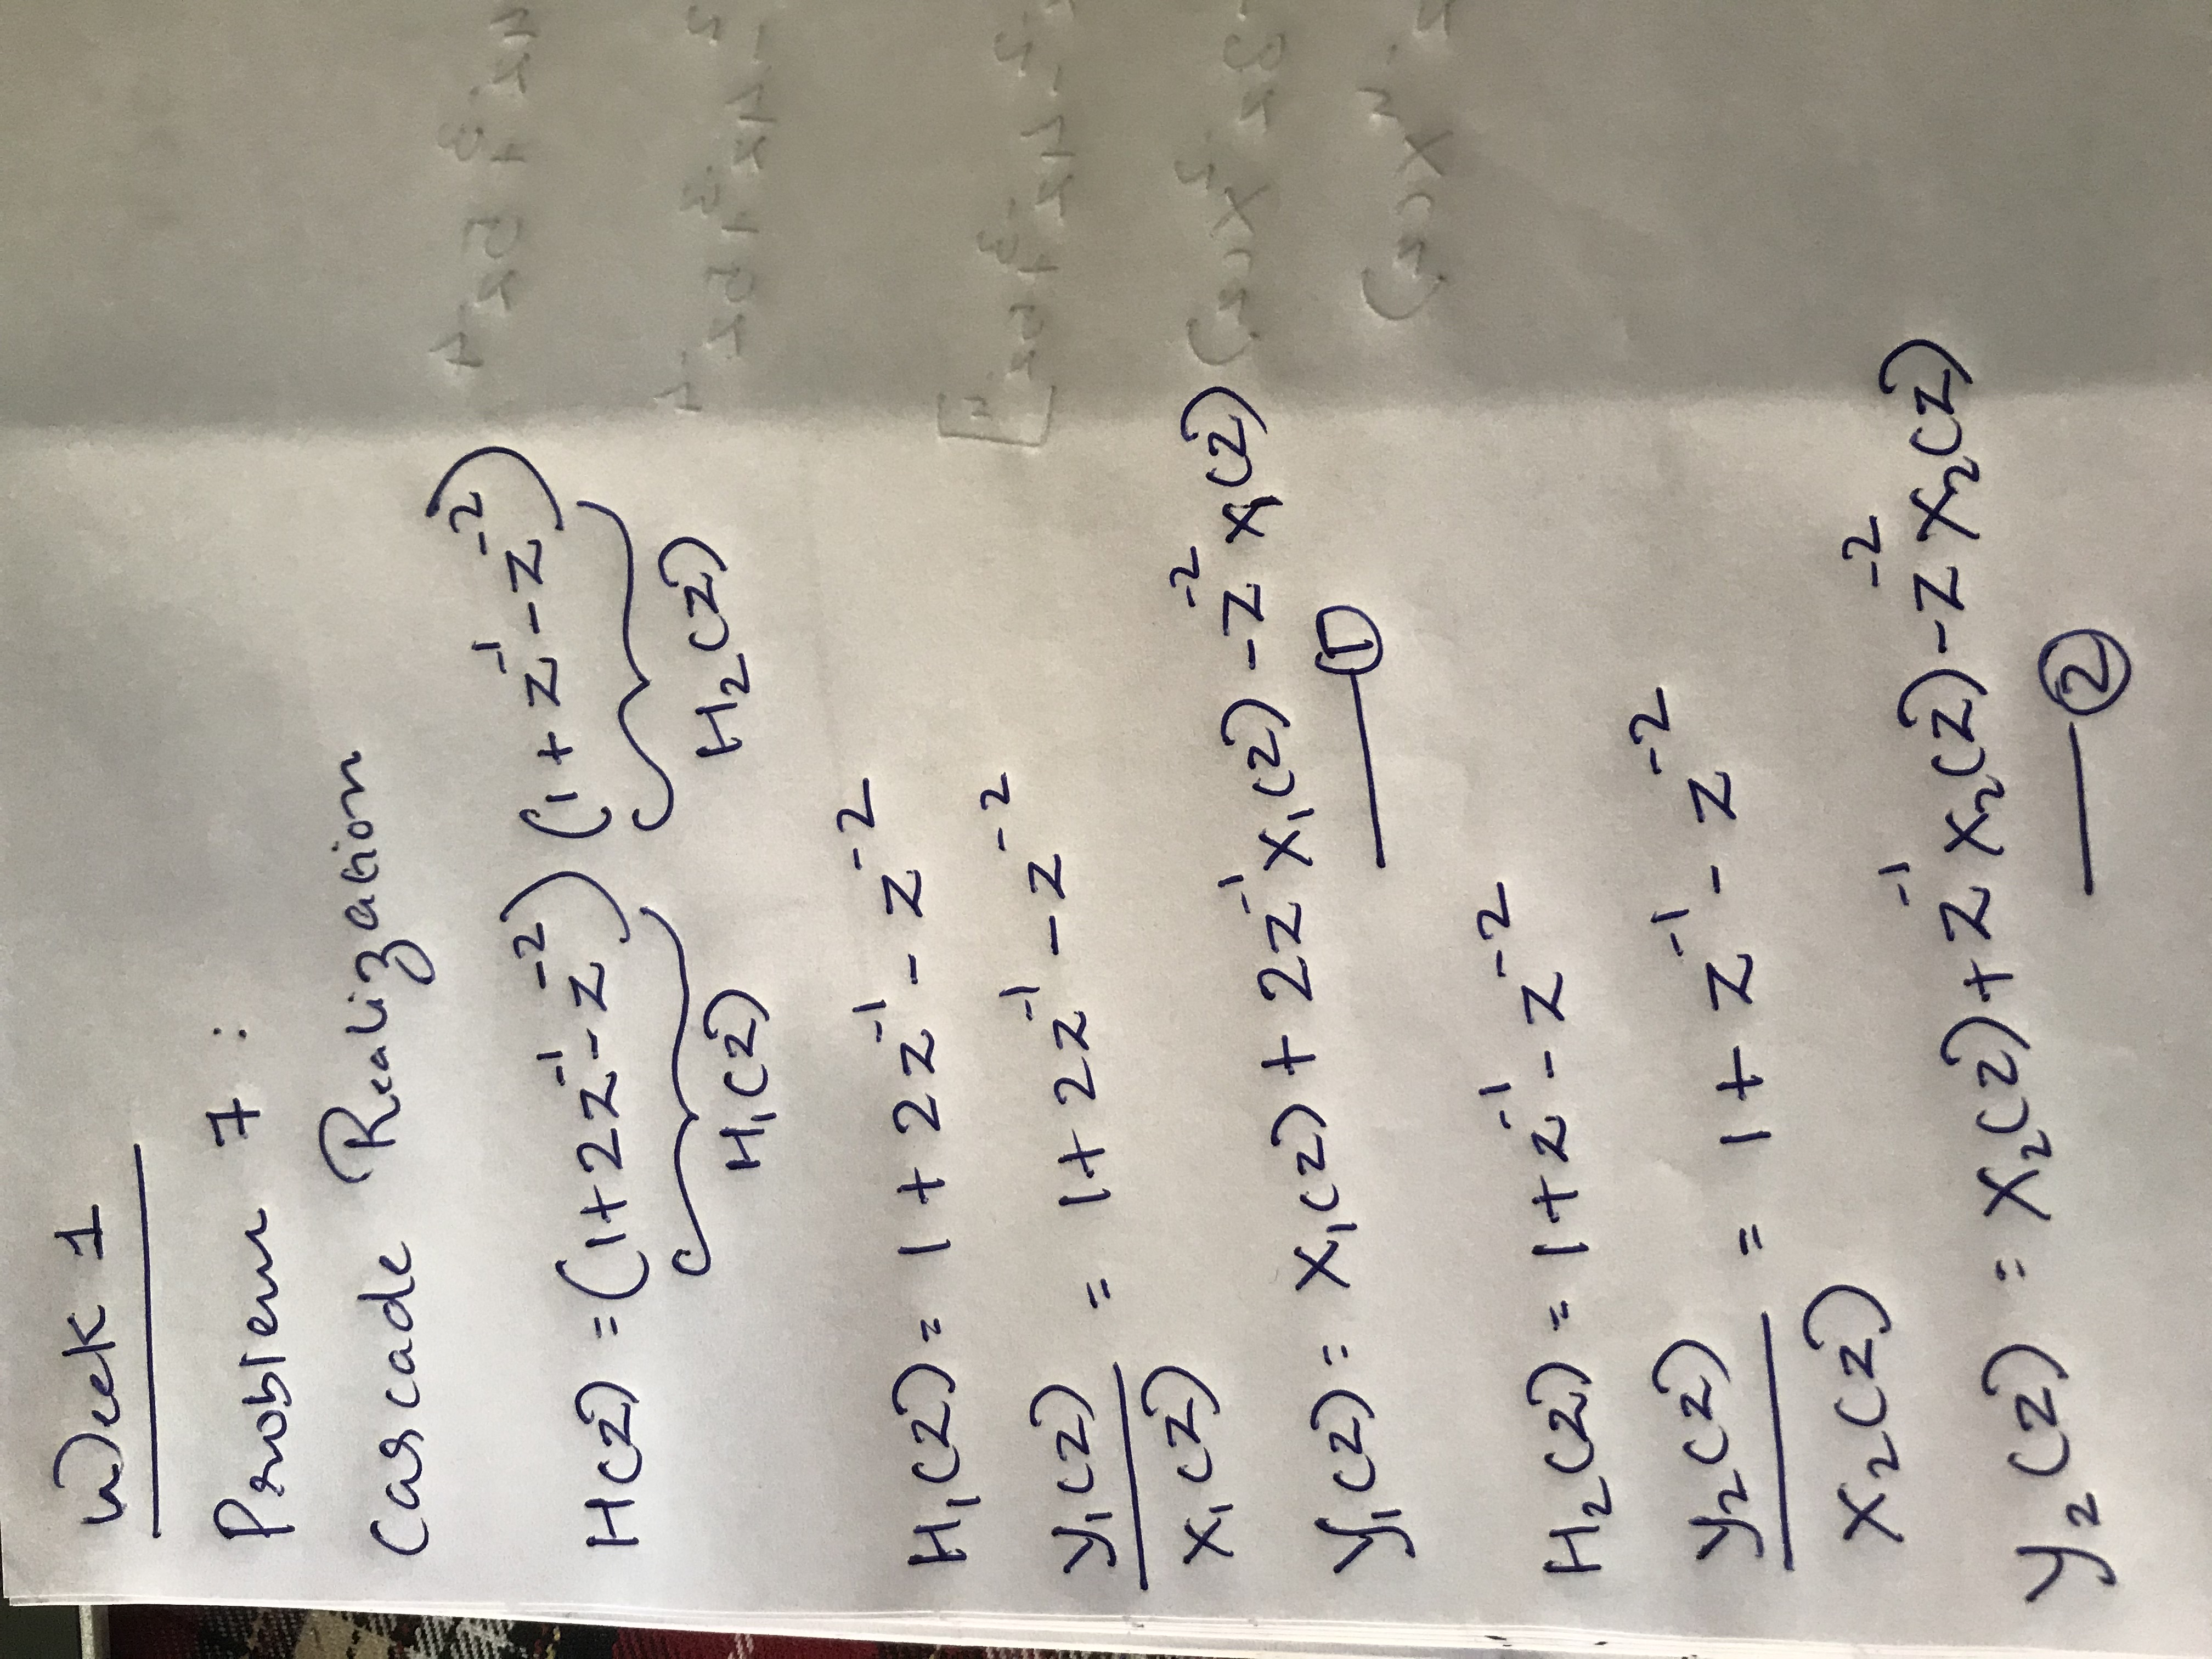 Week 1
Problem 7 :
Cascade Realization
H(z) = (1+2z⁻¹-z⁻²) (1+z⁻¹-z⁻²)
H₁(z) H₂(z)
H₁(z) = 1 + 2z⁻¹ - z⁻²
y₁(z) / X₁(z) = 1 + 2z⁻¹ - z⁻²
y₁(z) = X₁(z) + 2z⁻¹X₁(z) - z⁻²X₁(z)
—①
H₂(z) = 1 + z⁻¹ - z⁻²
y₂(z) / X₂(z) = 1 + z⁻¹ - z⁻²
y₂(z) = X₂(z) + z⁻¹X₂(z) - z⁻²X₂(z)
—②